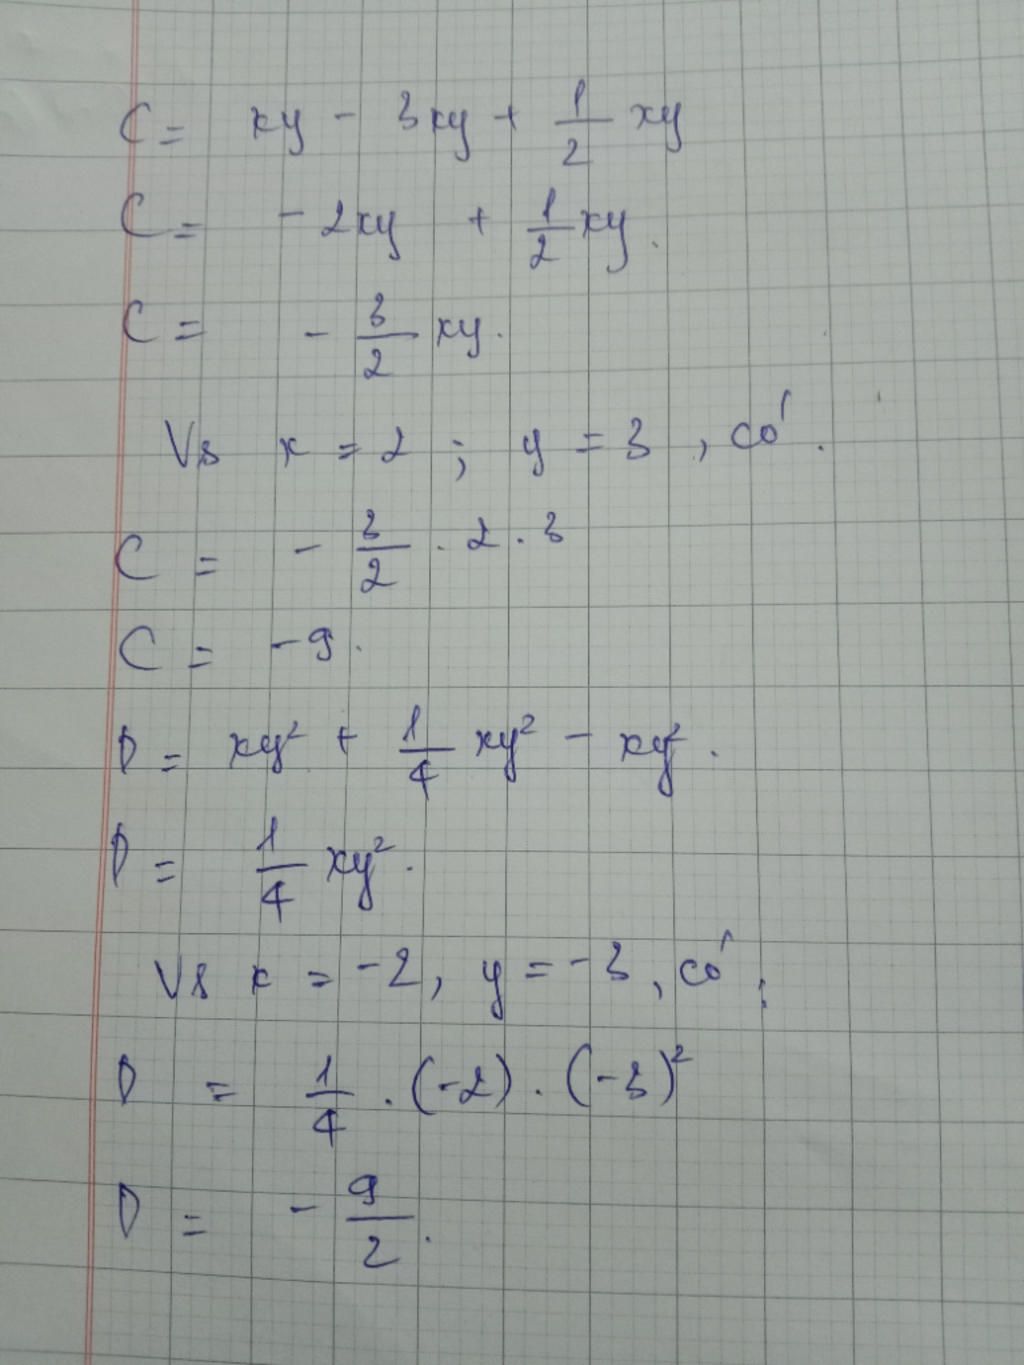 C = xy - 3xy + 1/2 xy
C = - 2xy + 1/2 xy.
C = - 3/2 xy.
Vs x = 2 ; y = 3 , có.
C = - 3/2 . 2 . 3
C = -9.
D = xy² + 1/4 xy² - xy².
D = 1/4 xy².
Vs x = -2, y = -3, có :
D = 1/4 . (-2) . (-3)²
D = - 9/2.